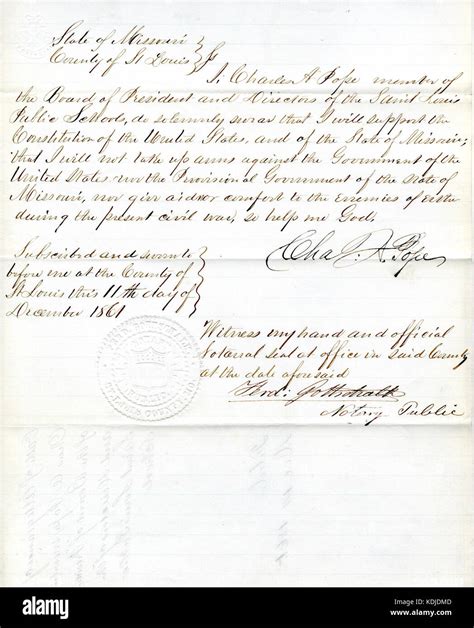 State of Missouri
County of St Louis
I, Charles A Pope member of
the Board of President and Directors of the Saint Louis
Public Schools, do solemnly swear that I will support the
Constitution of the United States, and of the State of Missouri;
that I will not take up arms against the Government of the
United States nor the Provisional Government of the state of
Missouri, nor give aid nor comfort to the enemies of either
during the present civil war, so help me God,
Chas. A. Pope
Subscribed and sworn to
before me at the County of
St Louis this 11th day of
December 1861
Witness my hand and official
Notarial seal at office in said County
at the date aforesaid
Ferdi: Gottschalk
Notary Public
a
alamy
Image ID: KDJDMD
www.alamy.com